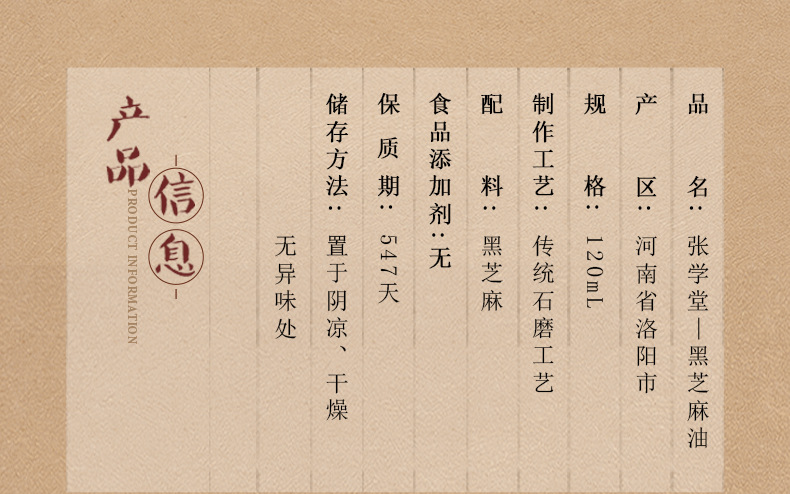 品名：张学堂—黑芝麻油
产区：河南省洛阳市
规格：120mL
制作工艺：传统石磨工艺
配料：黑芝麻
食品添加剂：无
保质期：547天
储存方法：置于阴凉、干燥
无异味处
产品
信息
PRODUCT INFORMATION